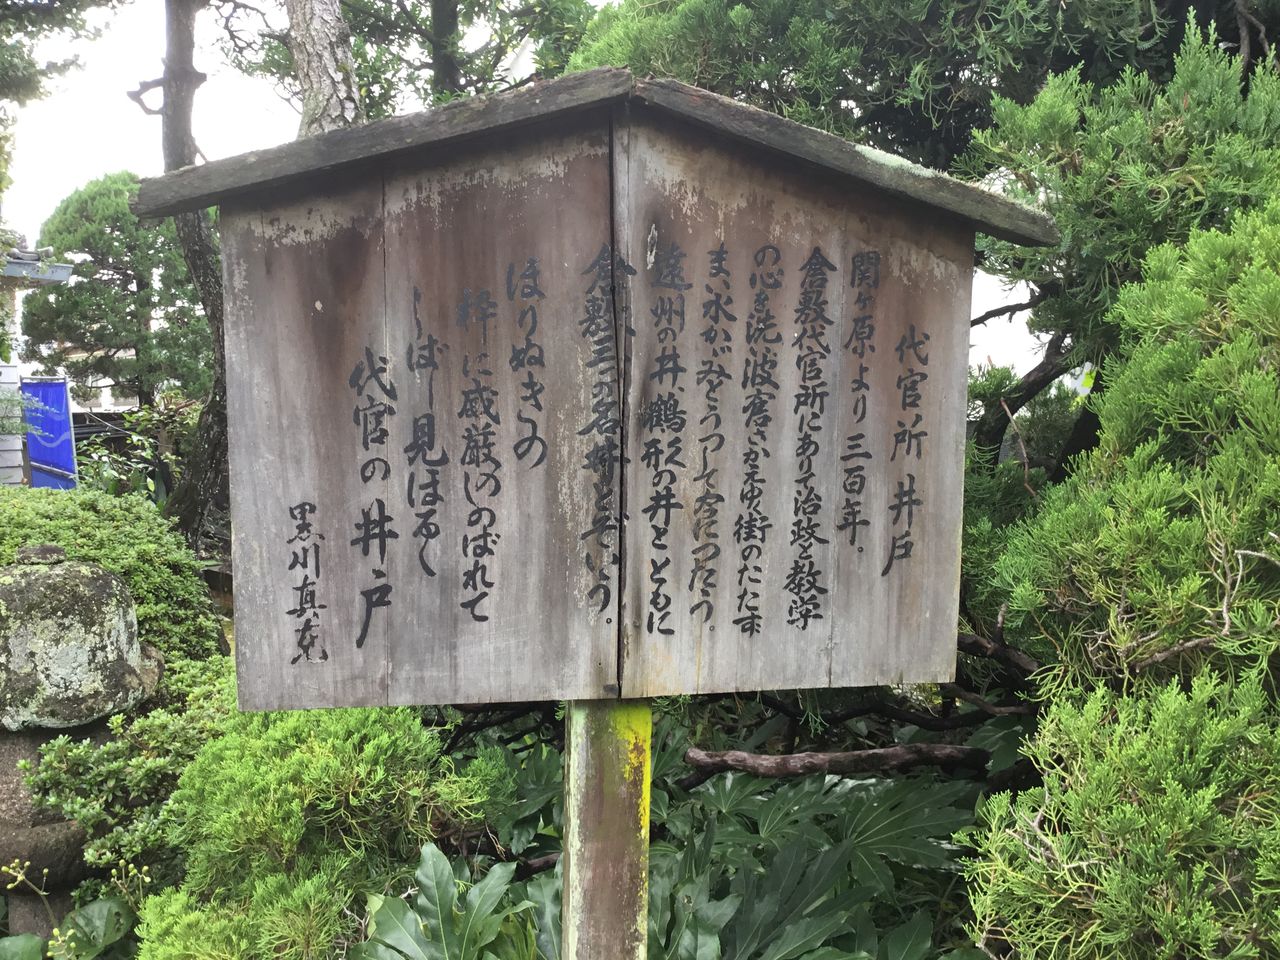 代官所井戸
関ヶ原より三百年。
倉敷代官所にありて治政と教学
の心を洗い波窓さかえゆく街のたたず
まい水かがみとうつして今につたう。
遠州の井、鶴形の井とともに
倉敷三つの名井とぞいう。
ほりぬきの
粋に威厳のしのばれて
しばし見ほるゝ
代官の井戸
黒川真